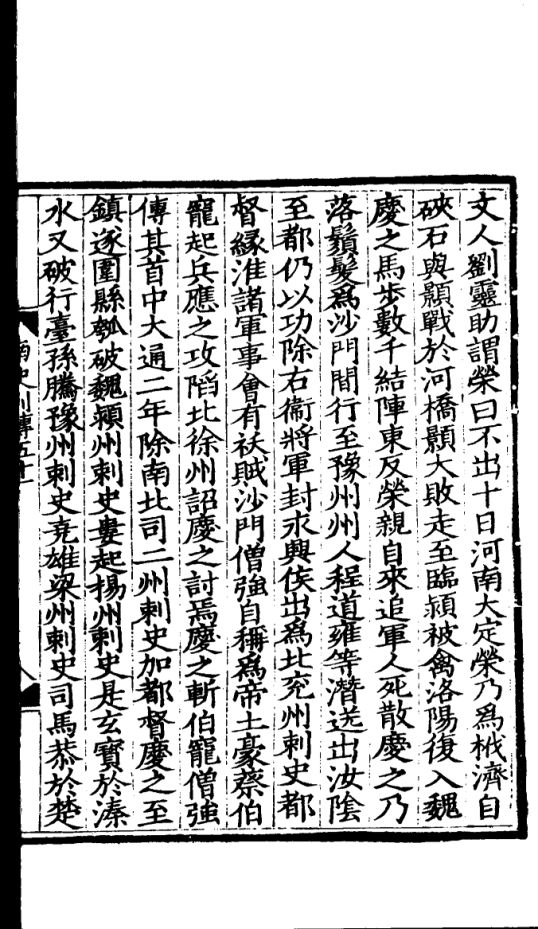 文人劉靈助謂榮曰不出十日河南大定榮乃爲栰濟自
硤石與顥戰於河橋顥大敗走至臨潁被禽洛陽復入魏
慶之馬步數千結陣東反榮親自來追軍人死散慶之乃
落鬚髮爲沙門間行至豫州州人程道雍等潛送出汝陰
至都仍以功除右衞將軍封永興侯出爲北兖州刺史都
督緣淮諸軍事會有祅賊沙門僧強自稱爲帝土豪蔡伯
寵起兵應之攻䧟北徐州詔慶之討焉慶之斬伯寵僧強
傳其首中大通二年除南北司二州刺史加都督慶之至
鎮遂圍縣瓠破魏潁州刺史婁起楊州刺史是玄寳於溱
水又破行臺孫騰豫州刺史尭雄梁州刺史司馬恭於楚
南史列傳五十一